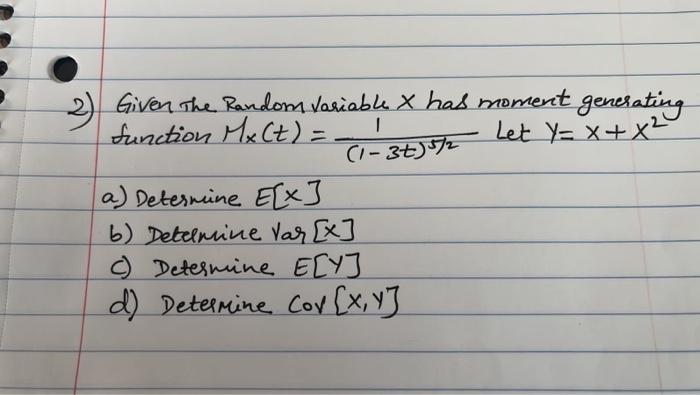 2) Given The Random Variable X has moment generating
function Mx(t) = 1 / (1-3t)^5/2 Let Y= X+X²
a) Determine E[X]
b) Determine Var [X]
c) Determine E[Y]
d) Determine Cov [X,Y]